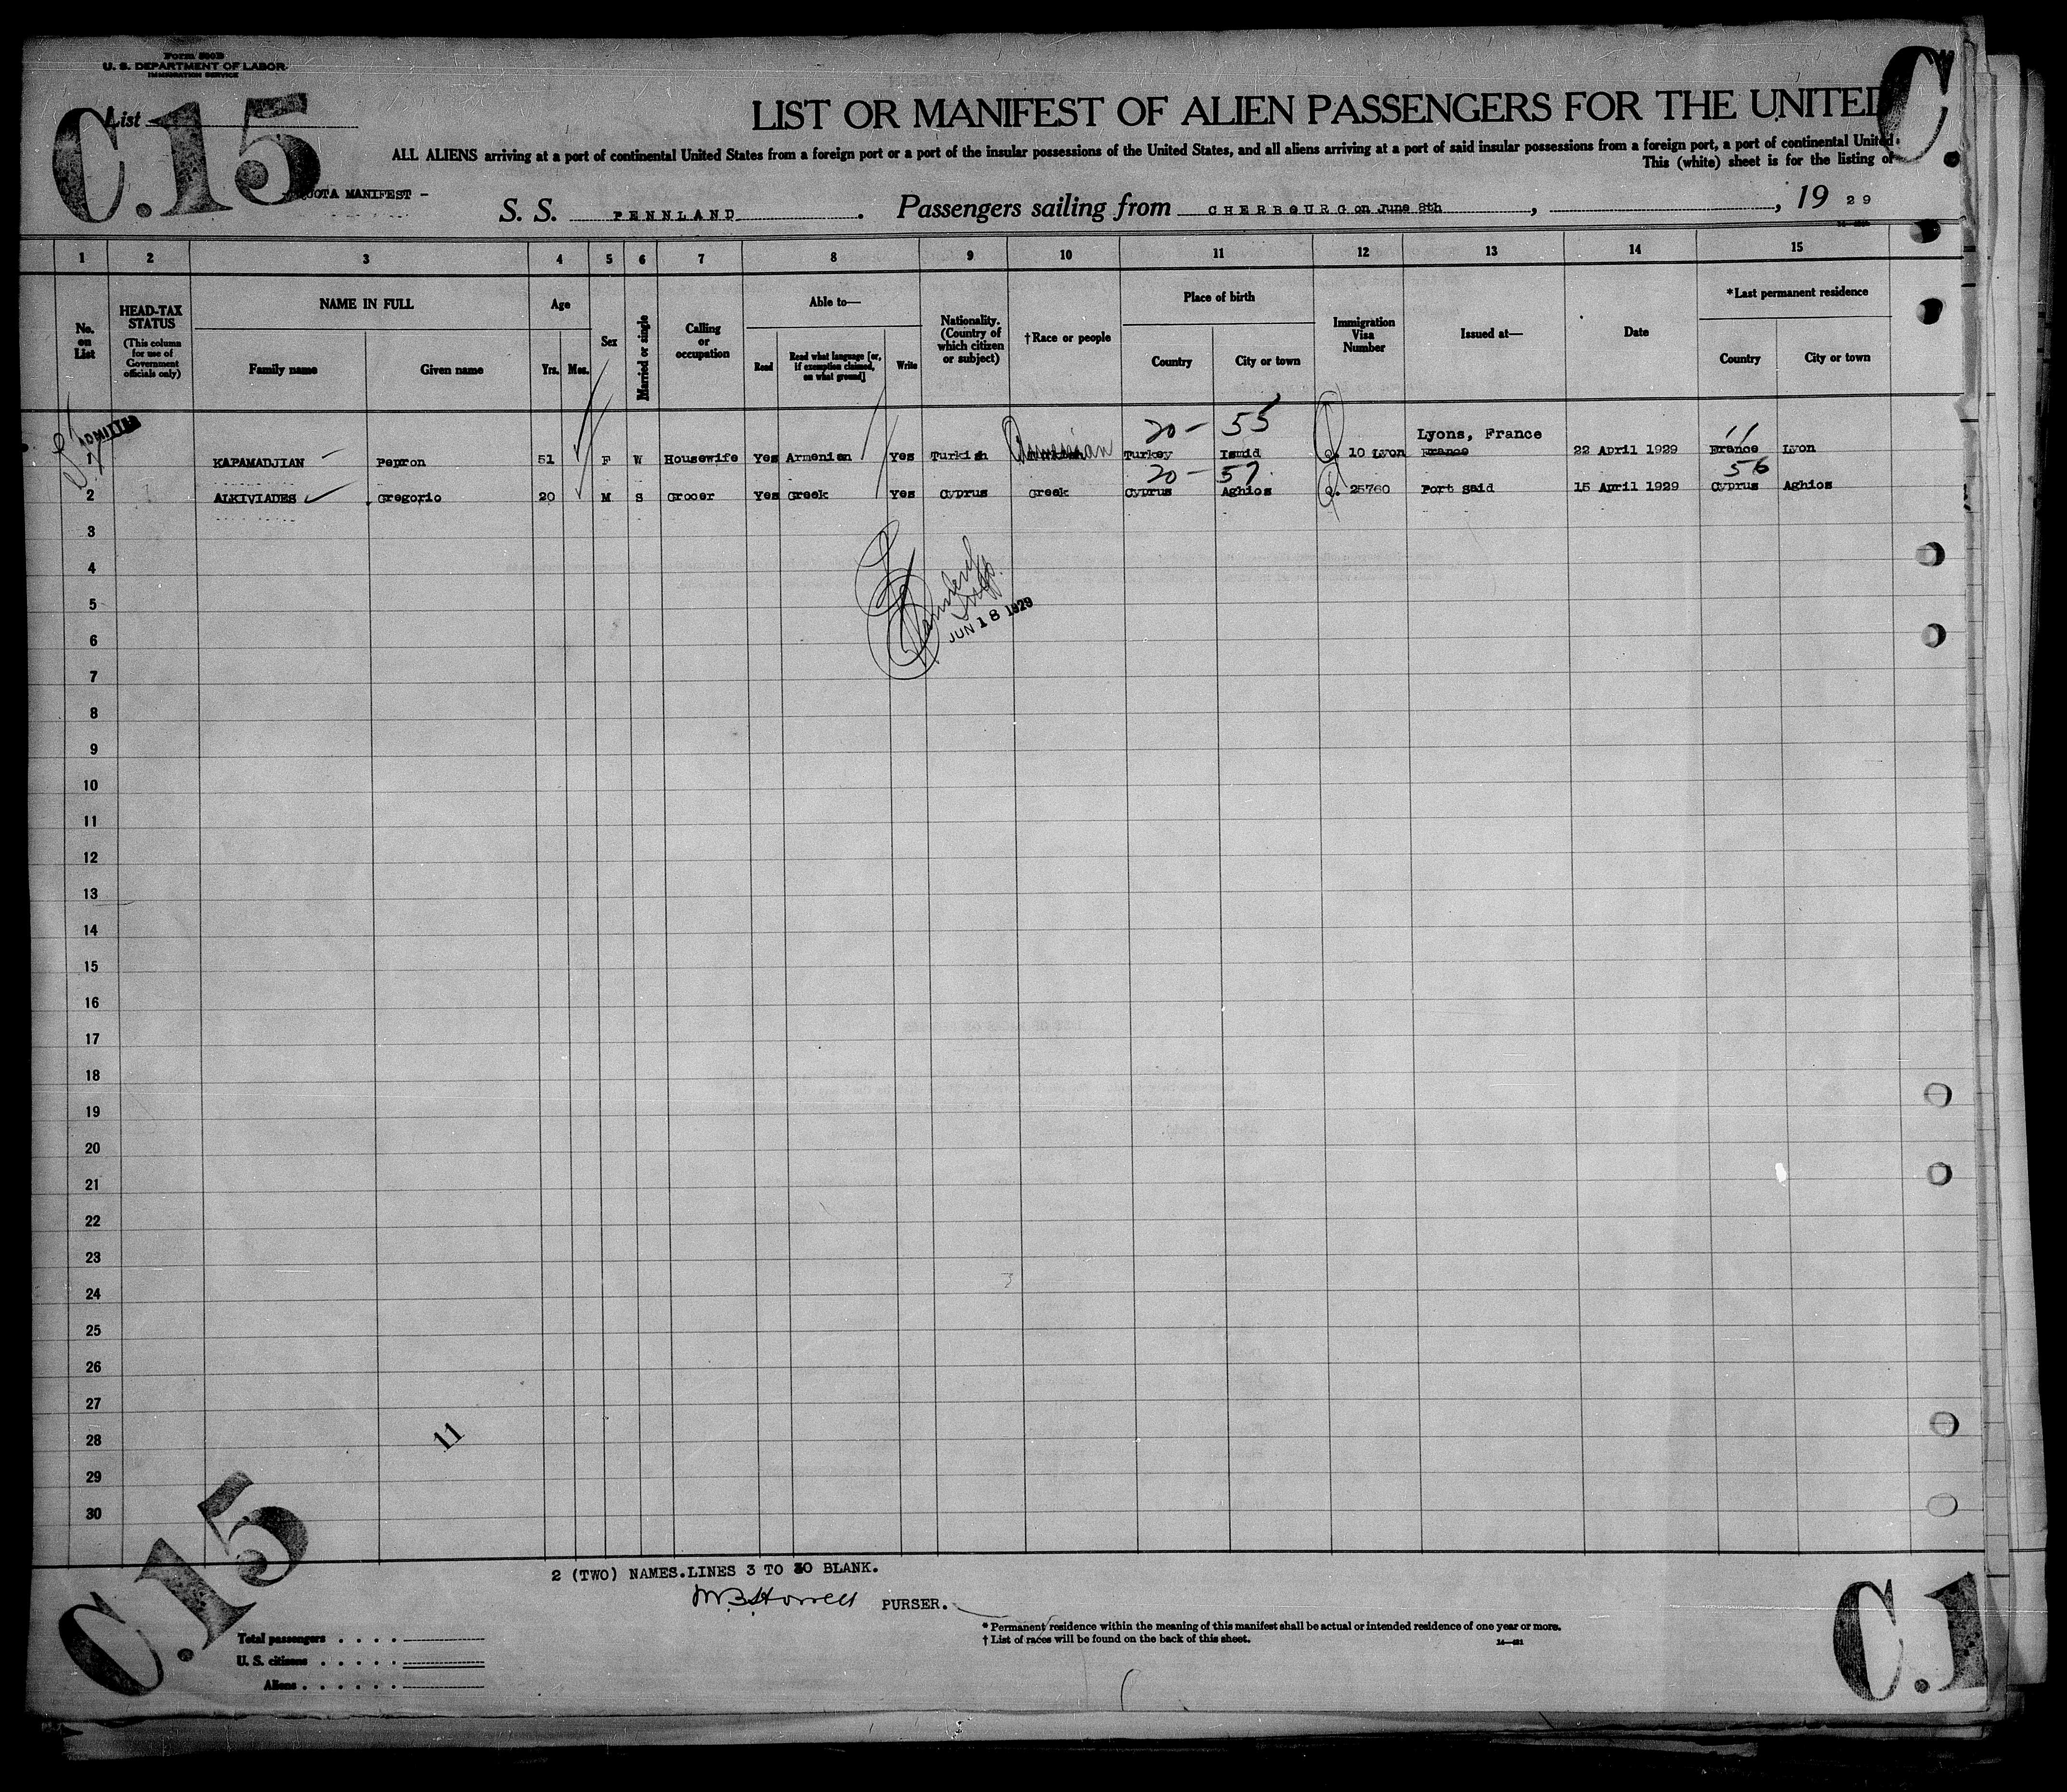 Form 500B
U. S. DEPARTMENT OF LABOR
IMMIGRATION SERVICE
C.15
C.
List
LIST OR MANIFEST OF ALIEN PASSENGERS FOR THE UNITED
ALL ALIENS arriving at a port of continental United States from a foreign port or a port of the insular possessions of the United States, and all aliens arriving at a port of said insular possessions from a foreign port, a port of continental United
This (white) sheet is for the listing of
QUOTA MANIFEST -
S. S. PENNLAND. Passengers sailing from CHERBOURG on June 8th, , 19 29
1 2 3 4 5 6 7 8 9 10 11 12 13 14 15
No. on List
HEAD-TAX STATUS
(This column for use of Government officials only)
NAME IN FULL
Family name Given name
Age
Yrs. Mos.
Sex
Married or single
Calling or occupation
Able to—
Read Read what language [or, if exemption claimed, on what ground] Write
Nationality. (Country of which citizen or subject)
†Race or people
Place of birth
Country City or town
Immigration Visa Number
Issued at—
Date
*Last permanent residence
Country City or town
ADMITTED
20 - 55 Lyons, France 11
1 KAPAMADJIAN Pepron 51 F W Housewife Yes Armenian Yes Turkish Armenian Turkey Ismid Q. 10 Lyon France 22 April 1929 France Lyon
20 - 57. 56
2 ALKIVIADES Gregorio 20 M S Grocer Yes Greek Yes Cyprus Greek Cyprus Aghios Q. 25760 Port Said 15 April 1929 Cyprus Aghios
3
4
5
JUN 18 1929
6
7
8
9
10
11
12
13
14
15
16
17
18
19
20
21
22
23
24
25
26
27
28
29
30
11
C.15
2 (TWO) NAMES.LINES 3 TO 30 BLANK.
PURSER.
* Permanent residence within the meaning of this manifest shall be actual or intended residence of one year or more.
† List of races will be found on the back of this sheet.
Total passengers . . . .
U. S. citizens . . . . .
Aliens . . . . . .
C.1